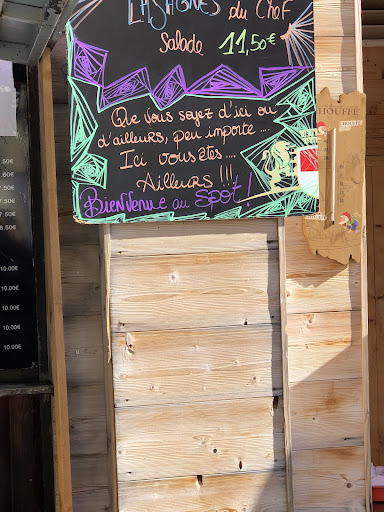 LASAGNES du Chef
Salade 11,50€
Que vous soyez d'ici ou
d'ailleurs, peu importe ....
Ici vous êtes ....
Ailleurs !!!
Bienvenue au Spot !
HOUFFE
.50€
7.50€
7.50€
6.50€
7.50€
8.50€
10.00€
10.00€
10.00€
10.00€
10.00€